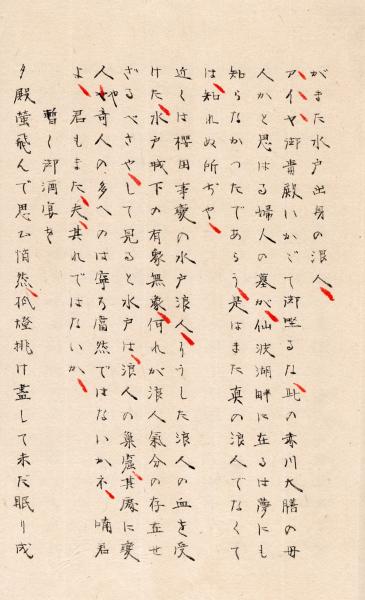 がまた水戸出身の浪人
アイヤ御貴殿いかゞで御座るな、此の赤川大膳の母
人かと思はる婦人の墓が、仙波湖畔に在るは夢にも
知らなかつたであらう、是はまた真の浪人でなくて
は知れぬ所ぢや、
近くは櫻田事変の水戸浪人、そうした浪人の血を受
けた水戸城下の有象無象、何れが浪人氣分の存在せ
ざるべきや、して見ると水戸は、浪人の巣窟、其處に変
人や奇人の多へのは寧ろ當然ではないかネ、喃君
よ、君もまた夫、其れではないか、
暫く御酒宴を
夕殿螢飛んで思ひ悄然、孤燈挑け盡して未だ眠り成